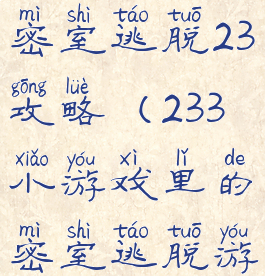 mì shì táo tuō
密室逃脱23
gōng lüè
攻略 (233
xiǎo yóu xì lǐ de
小游戏里的
mì shì táo tuō yóu
密室逃脱游